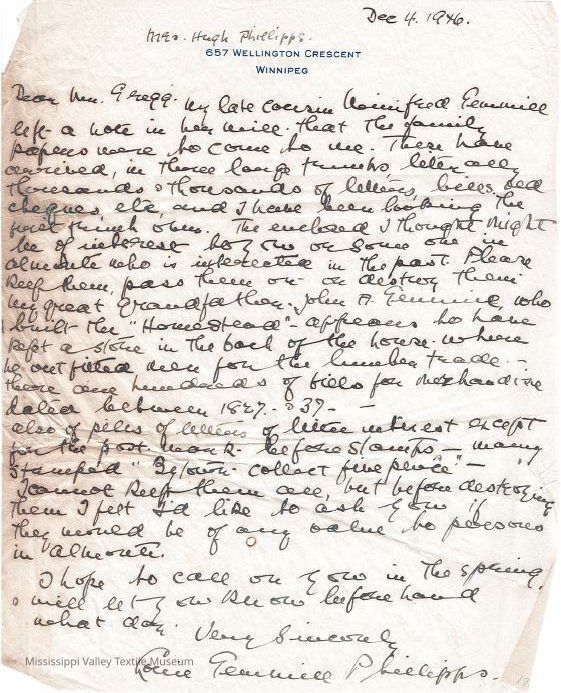 Dec 4. 1946.
Mrs. Hugh Phillipps.
657 WELLINGTON CRESCENT
WINNIPEG
Dear Mr. Gregg. My late cousin Winifred Gemmill
left a note in her will that the family
papers were to come to me. These have
arrived, in three large trunks, literally
thousands & thousands of letters, bills, old
cheques, etc, and I have been looking the
first trunk over. The enclosed I thought might
be of interest to you or some one in
Almonte who is interested in the past. Please
keep them, pass them on or destroy them.
My great Grandfather. John A. Gemmill, who
built the "Homestead" - appears to have
kept a store in the back of the house where
he outfitted men for the lumber trade. -
there are hundreds of bills for merchandise
dated between 1827. & 37 - -
also of piles of letters of little interest except
for the post mark - before stamps - many
stamped "Bytown collect five pence" -
I cannot keep them all, but before destroying
them I felt I'd like to ask you if
they would be of any value to persons
in Almonte.
I hope to call on you in the spring,
& will let you know beforehand
what day.
Very Sincerely
Gemmill Phillipps.
Mississippi Valley Textile Museum